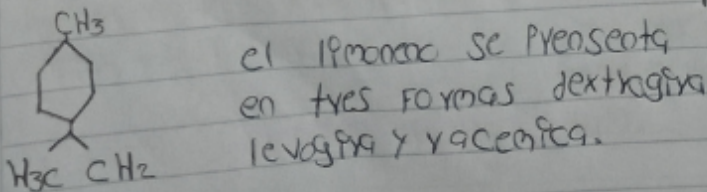 CH3
el limoneno se preosenta
en tres formas dextrogira
levogira y racemica.
H3C CH2